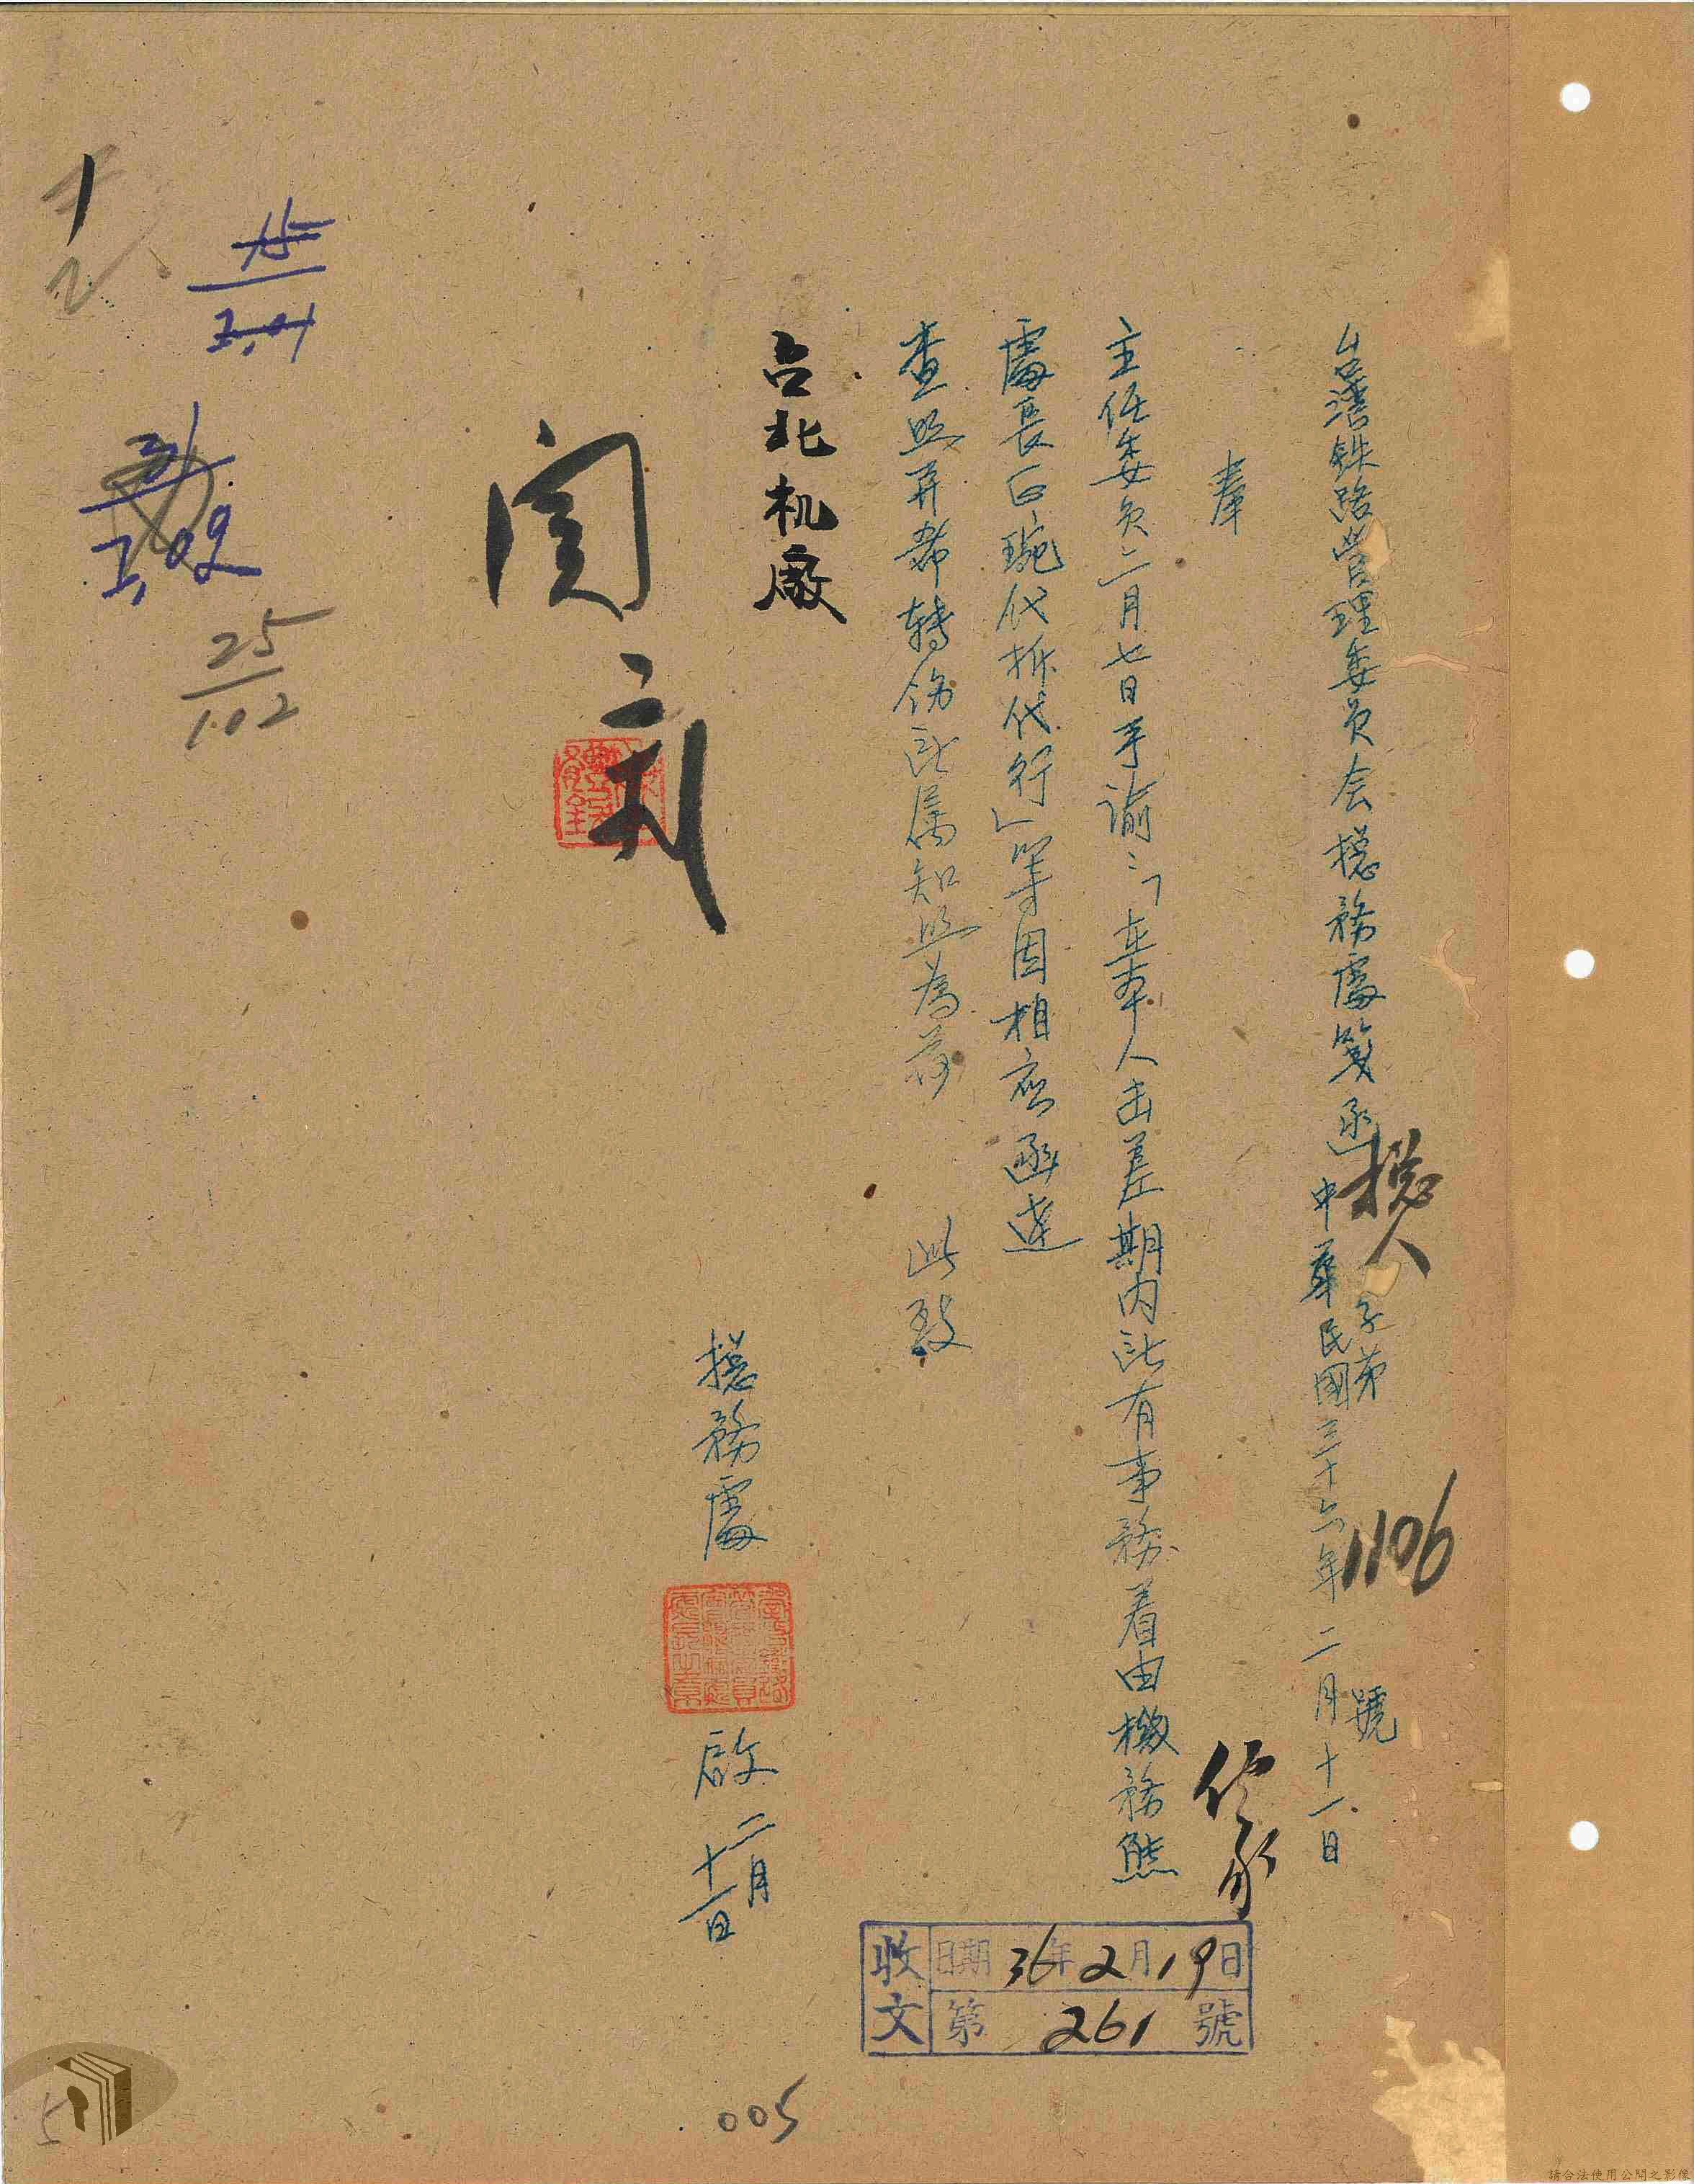 台灣鉄路管理委員会摠務處箋函
摠人字第1106號
中華民國三十六年二月十一日
奉
主任委员二月七日手諭:「在本人出差期内所有事務着由機務熊
處長正琬代拆代行」等因相应函達
查照并希轉飭所属知照為荷 此致
台北机廠
摠務處 啟 二月十一日
閲
收文
日期 36年2月19日
第 261 號
25
1.02
005
5
請合法使用公開之影像